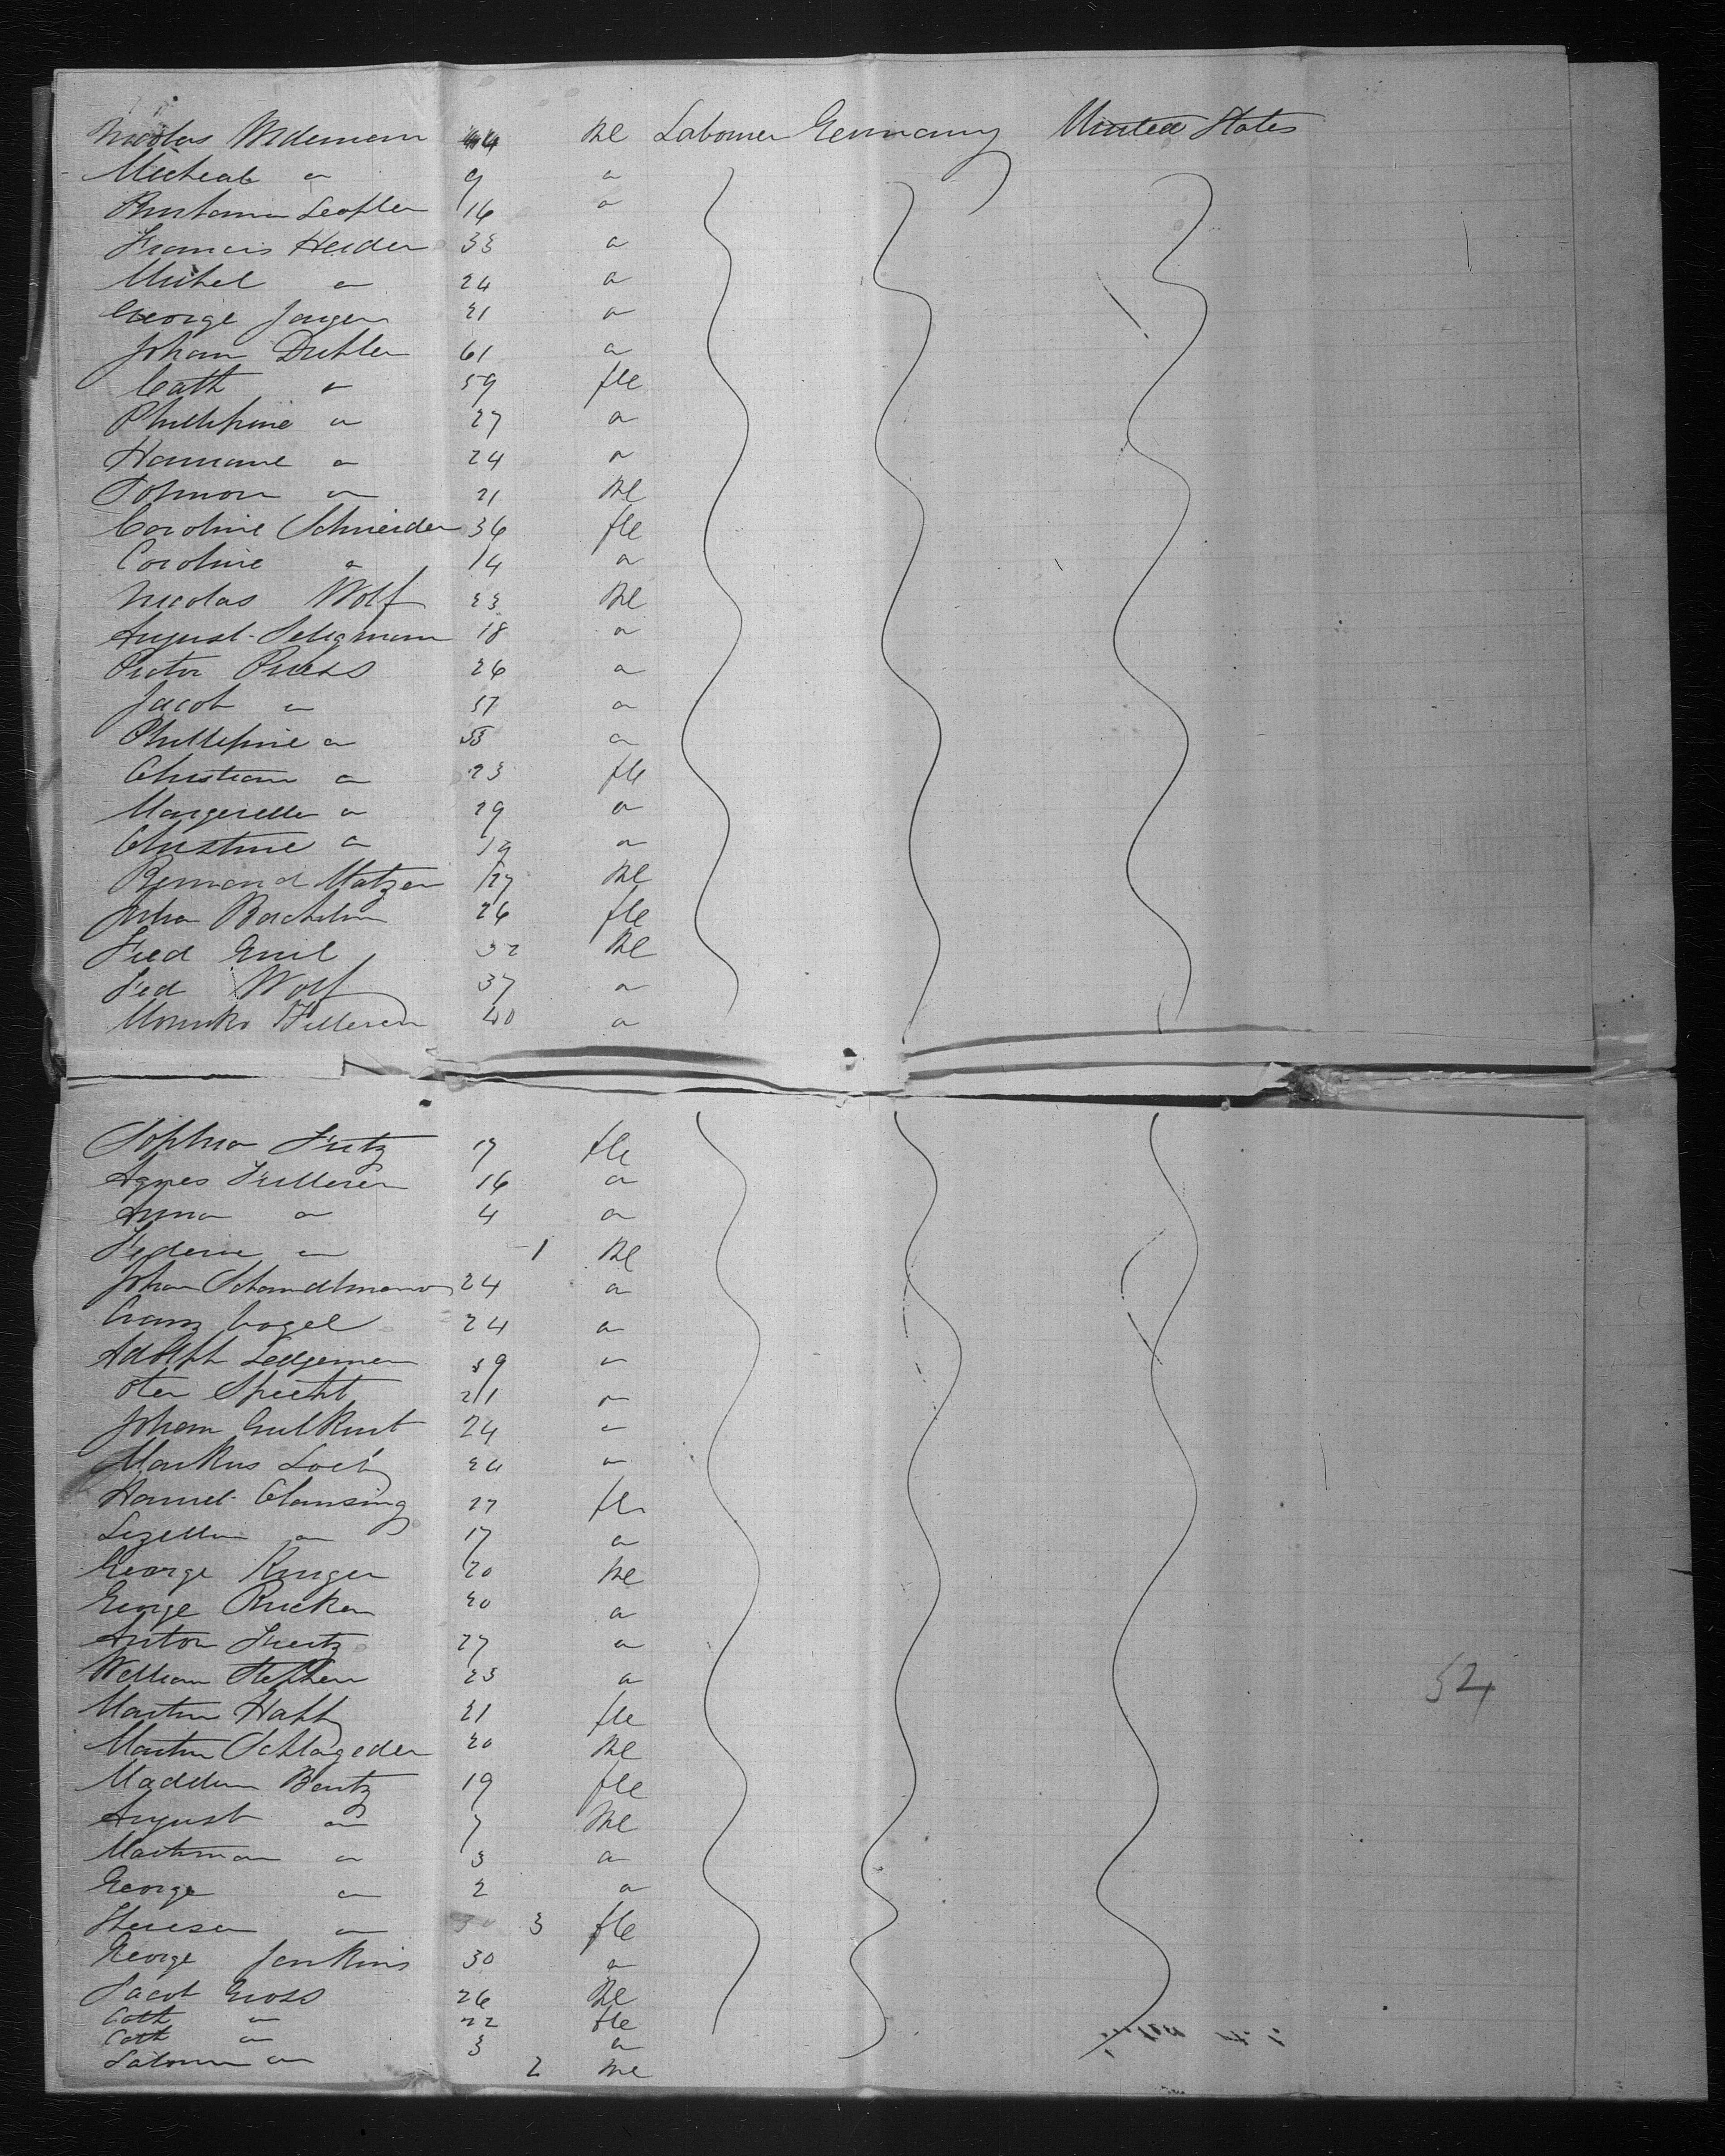 Nicolas Widemann 44 Ml Labourer Germany United States
Micheal " 9 "
Leofler 16 "
Francis Heider 33 "
Michel " 24 "
George Jager 21 "
Johan Duhler 61 "
Cath " 59 fle
Phillipine " 27 "
Hannane " 24 "
Solomon " 21 Ml
Caroline Schneider 36 fle
Caroline " 14 "
Nicolas Wolf 23 Ml
August Seligman 18 "
Victor Priess 26 "
Jacob " 57 "
Phillipine " 55 "
Christian " 23 fle
Margerette " 29 "
Christine " 19 "
Remond Matzer 27 Ml
Julia Bachelin 26 fle
Fred Emil 32 Ml
Fed Wolf 37 "
40 "
Sophia Fritz 17 fle
Agnes Fullerer 16 "
Anna " 4 "
" 1 Ml
Johan Schandlmann 24 "
Franz Vogel 24 "
Adolph Ledgeman 39 "
Oter Specht 21 "
Johan 24 "
Markus Loeb 24 "
Clausing 27 fle
" 17 "
George Kruger 20 Ml
George Rucker 20 "
Anton Fritz 27 "
William Stephen 23 "
Martin Habby 21 fle
Martin Schlageder 20 Ml
Madelin Bentz 19 fle
August " 7 Ml
" 3 "
George " 2 "
Theresa " 3 fle
George Jenkins 30 "
Jacob Gross 26 Ml
Cath " 22 fle
Cath " 3 "
" 2 Ml
54